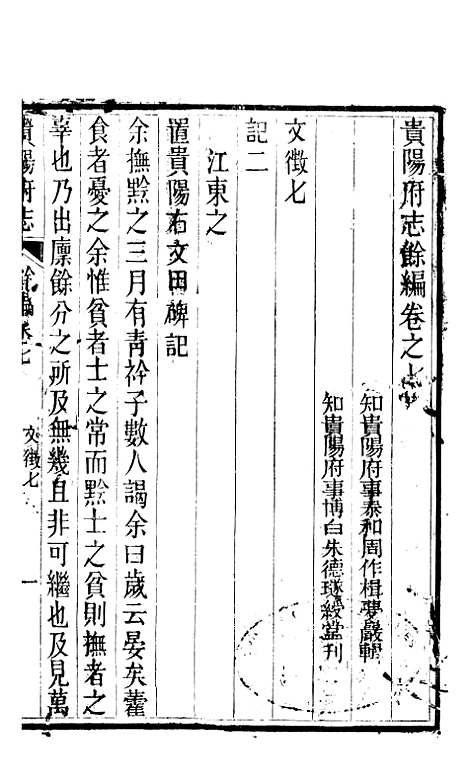 貴陽府志餘編卷之七
知貴陽府事泰和周作楫夢巖輯
知貴陽府事博白朱德璲綬堂刊
文徵七
記二
江東之
置貴陽右文田碑記
余撫黔之三月有靑衿子數人謁余曰歲云晏矣藿
食者憂之余惟貧者士之常而黔士之貧則撫者之
辜也乃出廩餘分之所及無幾且非可繼也及見萬
貴陽府志
餘編卷七
文徵七
一